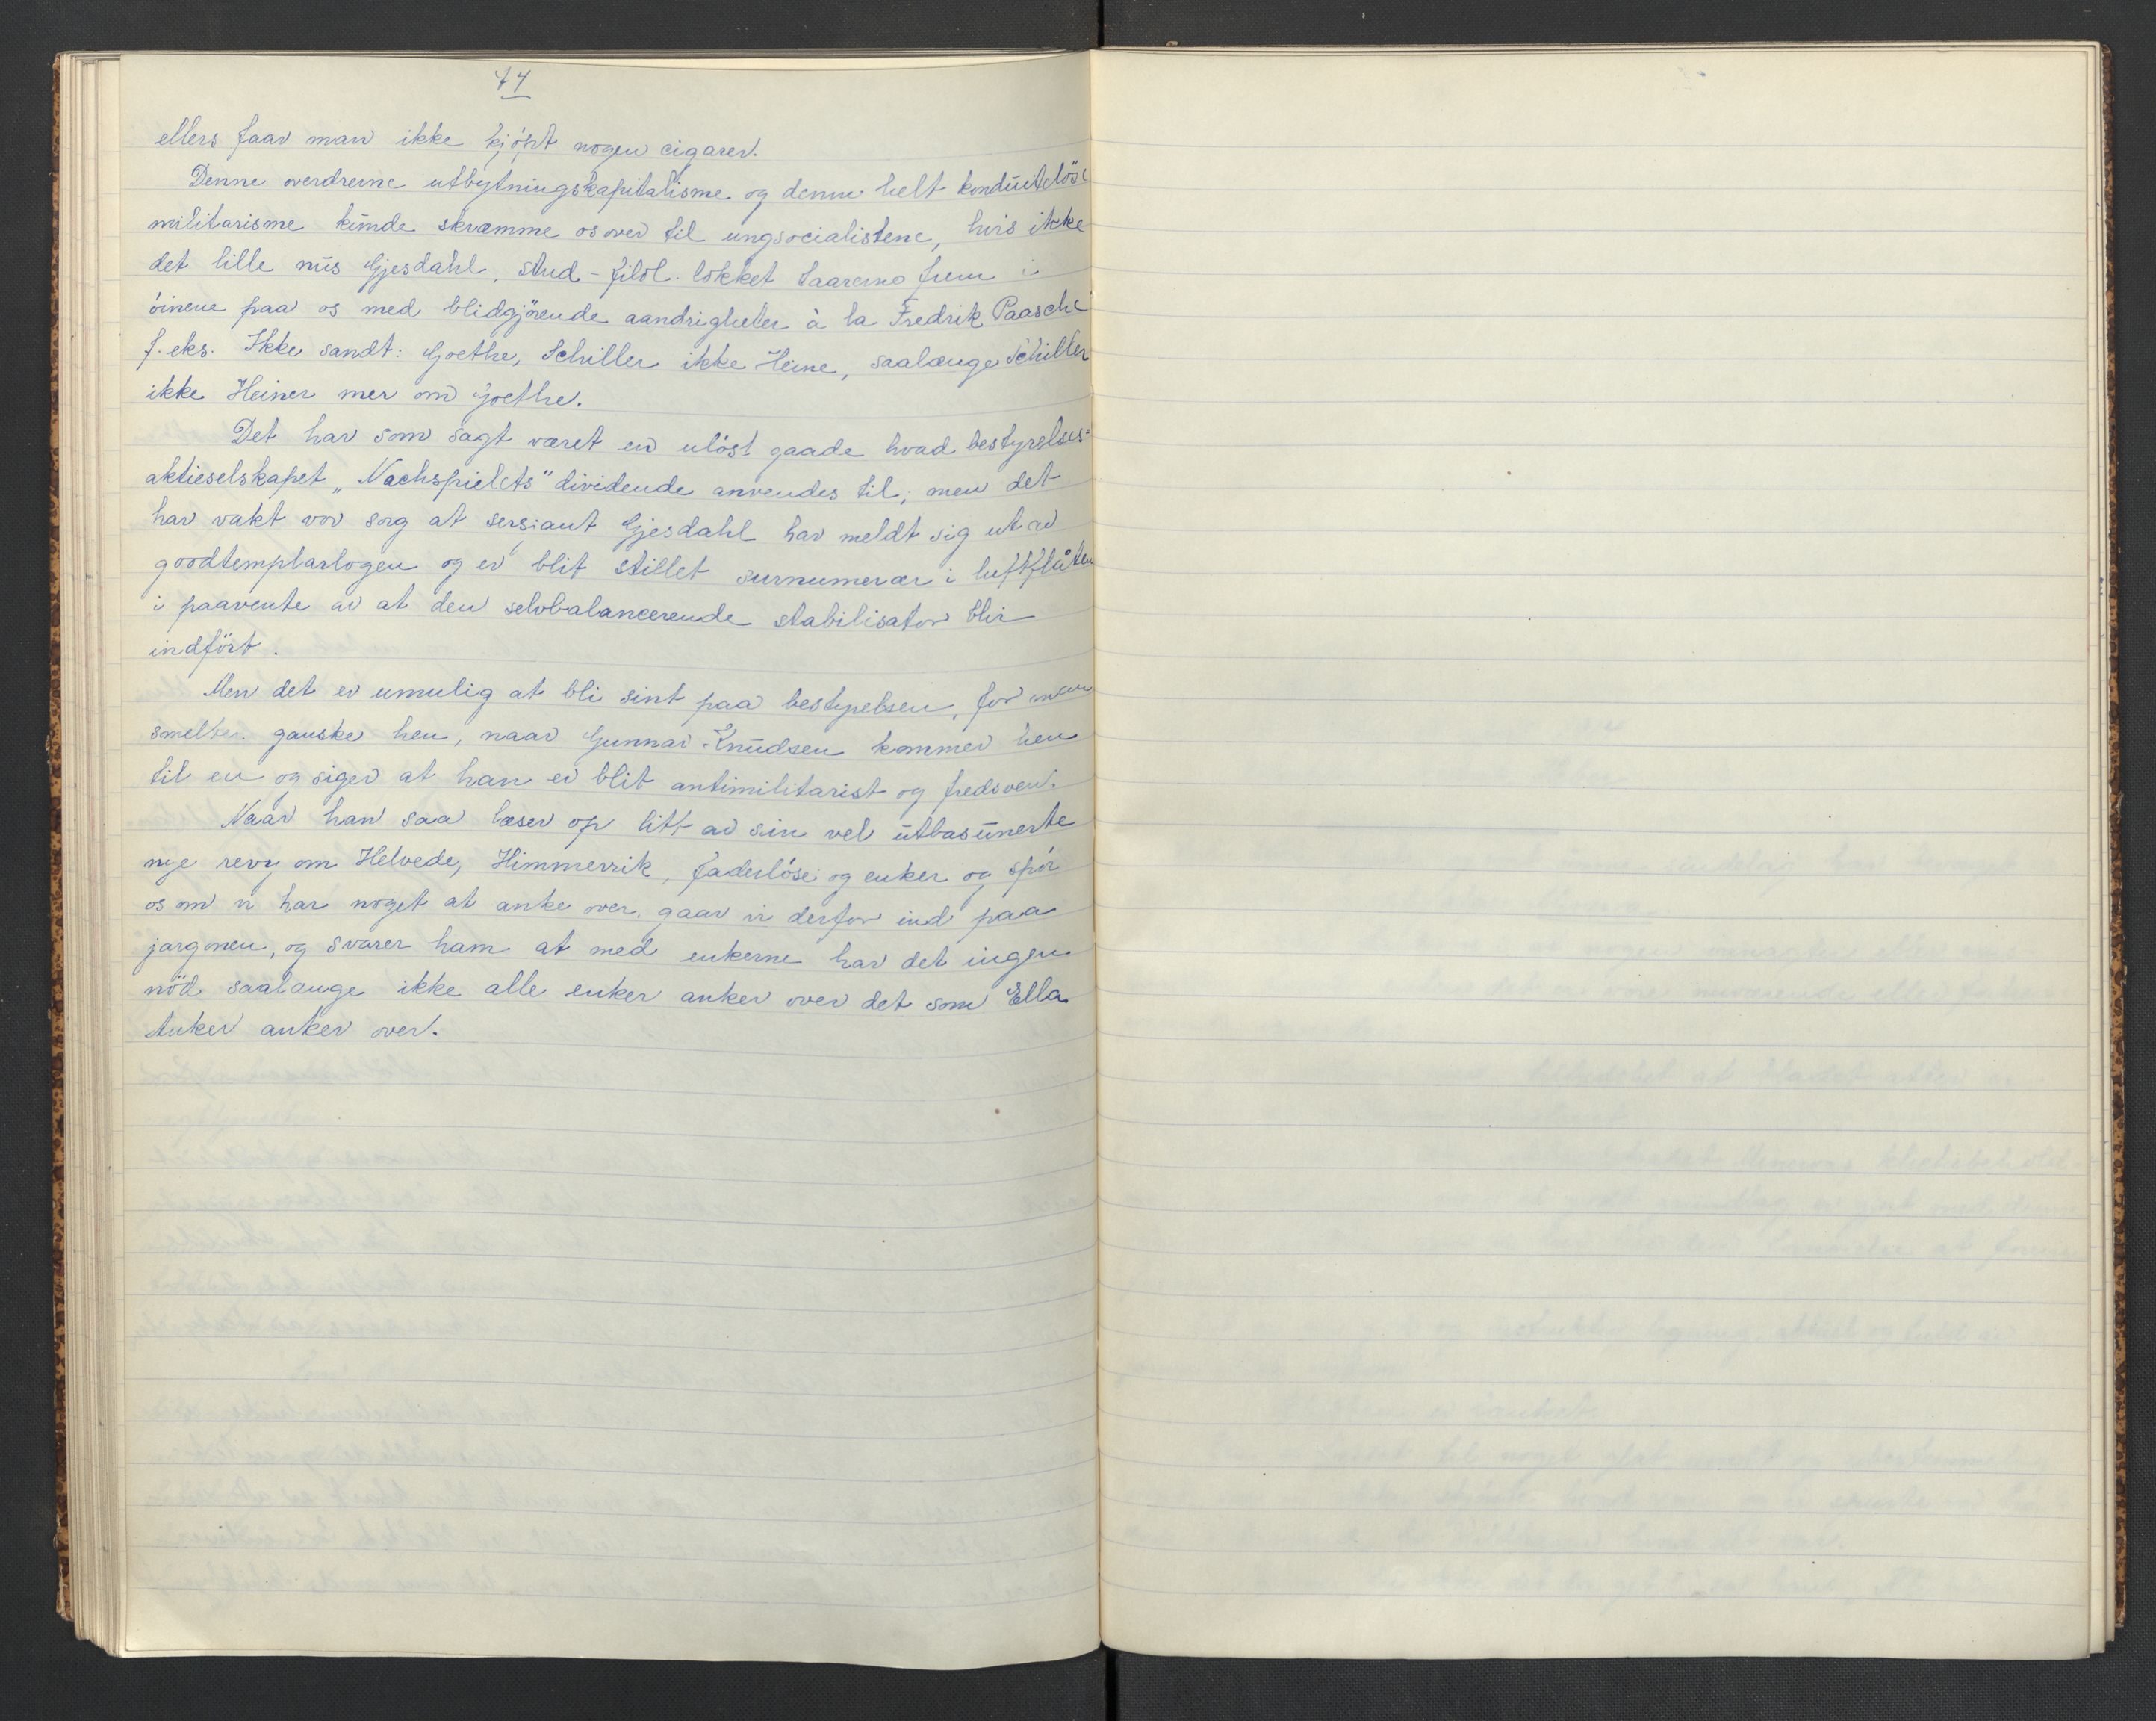 44
ellers faar man ikke kjöpt nogen cigarer.
Denne overdrevne utbytningskapitalisme og denne helt konduitelöse
militarisme kunde skræmme os over til ungsocialistene, hvis ikke
det lille nus Gjesdahl, stud-filol. lokket taarerne frem i
öinene paa os med blidgjörende aandrigheter à la Fredrik Paasche
f. eks. Ikke sandt: Goethe, Schiller ikke Heine, saalænge Schiller
ikke Heiner mer om Goethe.
Det har som sagt været en ulöst gaade hvad bestyrelses-
aktieselskapet „Nachspielets" dividende anvendes til; men det
har vakt vor sorg at sersjant Gjesdahl har meldt sig ut av
goodtemplarlogen og er blit stillet surnumerær i luftflåten
i paavente av at den selvbalancerende stabilisator blir
indfört.
Men det er umulig at bli sint paa bestyrelsen, for man
smelter ganske hen, naar Gunnar Knudsen kommer hen
til en og siger at han er blit antimilitarist og fredsven.
Naar han saa læser op litt av sin vel utbasunerte
nye revy om Helvede, Himmerrik, faderlöse og enker og spör
os om vi har noget at anke over, gaar vi derfor ind paa
jargonen, og svarer ham at med enkerne har det ingen
nöd saalænge ikke alle enker anker over det som Ella
Anker anker over.